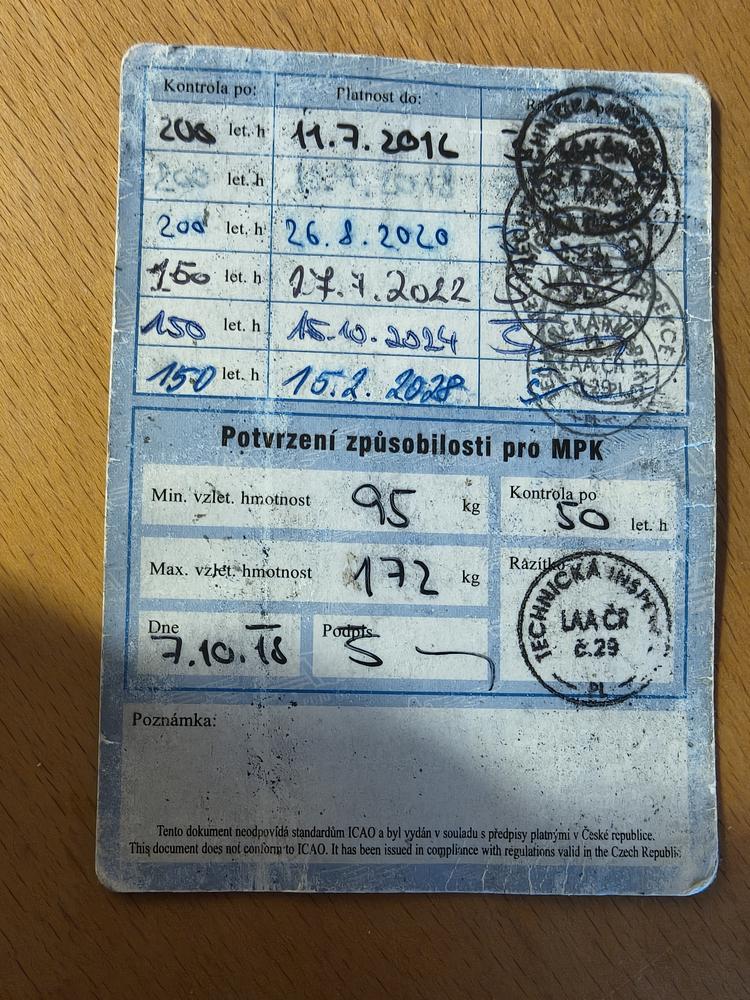 Kontrola po: Platnost do:
200 let. h 11.7.2016
200 let. h
200 let. h 26.8.2020
150 let. h 17.7.2022
150 let. h 15.10.2024
150 let. h 15.2.2028
Potvrzení způsobilosti pro MPK
Min. vzlet. hmotnost 95 kg
Kontrola po 50 let. h
Max. vzlet. hmotnost 172 kg
Razítko
TECHNICKÁ INSP
LAA ČR
č.29
PL
Dne 7.10.18
Podpis
Poznámka:
Tento dokument neodpovídá standardům ICAO a byl vydán v souladu s předpisy platnými v České republice.
This document does not conform to ICAO. It has been issued in compliance with regulations valid in the Czech Republic.